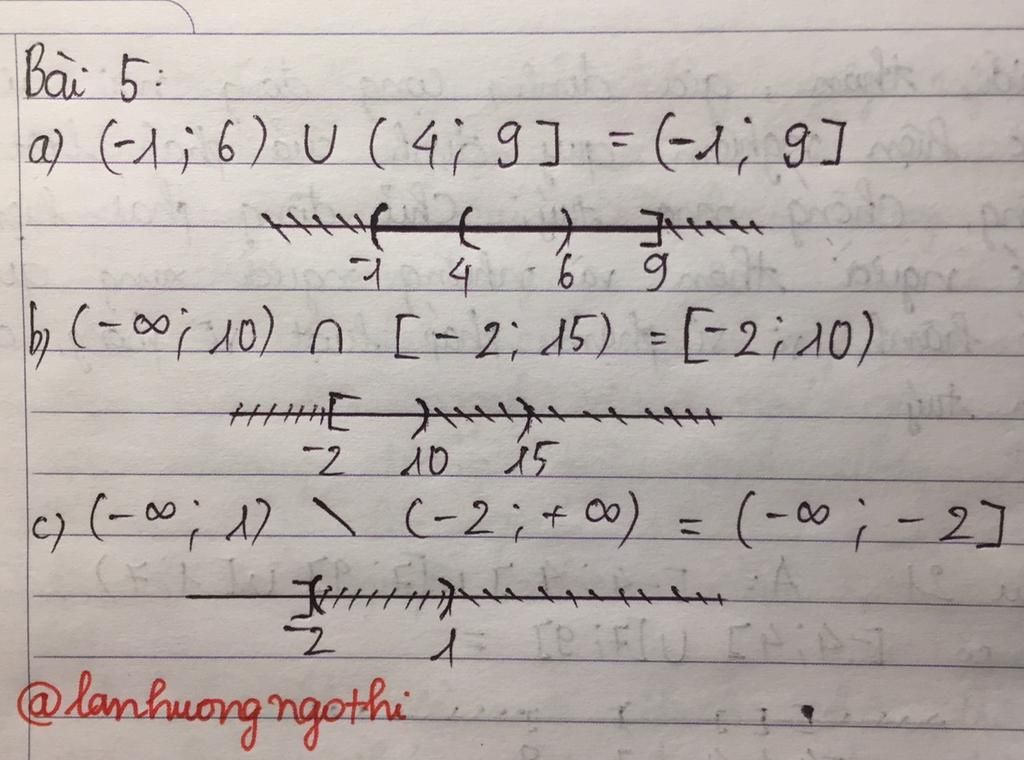 Bài 5:
a) (-1; 6) ∪ (4; 9] = (-1; 9]
-1 4 6 9
b) (-∞; 10) ∩ [-2; 15) = [-2; 10)
-2 10 15
c) (-∞; 1) \ (-2; +∞) = (-∞; -2]
-2 1
@lanhuongngothi